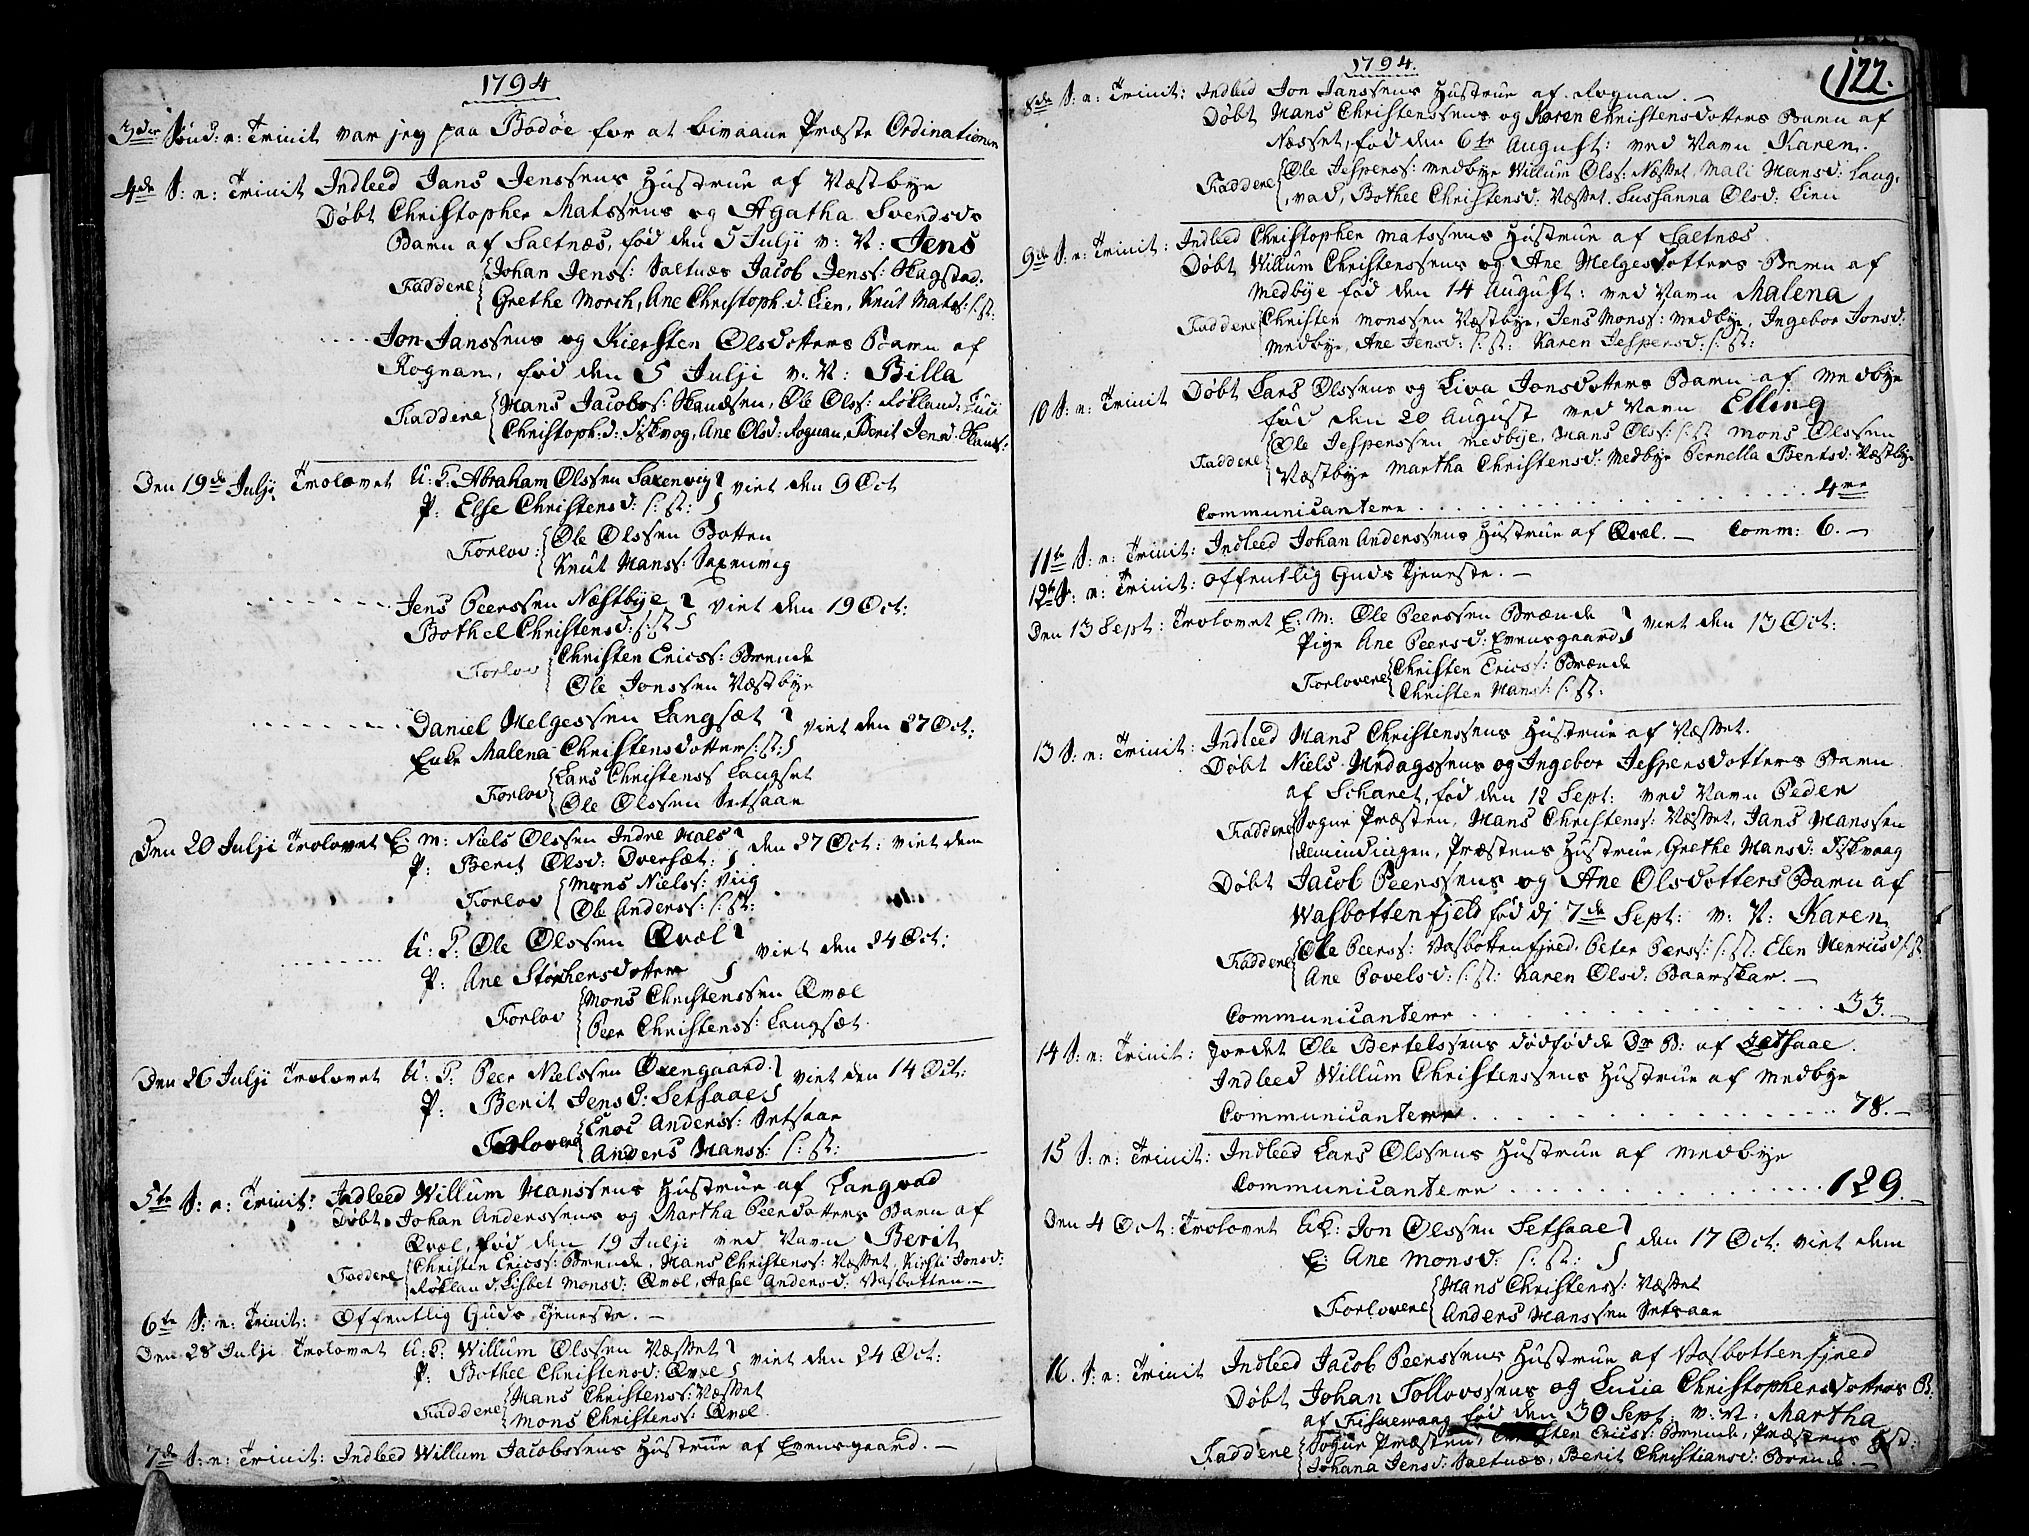 1794
3die Sönd: e: Trinit var jeg paa Bodöe for at bivaane Præste Ordinationen
4de S: e: Trinit Indleed Jans Jenssens Hustrue af Næstbye
Döbt Christopher Matssens og Agatha Svendsd:
Barn af Saltnæs, föd den 5 Julji v: N: Jens
Faddere Johan Jenss: Saltnæs Jacob Jenss: Hagstad
Grethe Morch, Ane Christoph:d: Lien, Knut Mats: s: st:
Jon Janssens og Kiersten Olsdotters Barn af
Rognan, föd den 5 Julji v: N: Billa
Faddere Hans Jacobs: Saudsen, Ole Olss: Rökland: Luci
Christoph:d: Fiskvog, Ane Olsd: Rognan, Berit Jensd:
Den 19de Julji Trolovet U: K: Abraham Olssen Saxenvig viet den 9 Oct
P: Else Christensd: s: st:
Forlov: Ole Olssen Botten
Knut Hanss: Saxenvig
Jens Peerssen Næstbye viet den 19 Oct:
Bothel Christensd: s: st:
Forlov Christen Erics: Brende
Ole Jonssen Næstbye
Daniel Helgessen Langsæt viet den 27 Oct:
Enke Malena Christensdotter s: st:
Forlov Lars Christens: Langset
Ole Olssen Setsaae
Den 20 Julji Trolovet E: M: Niels Olssen Indre Hals den 27 Oct: viet dem
P: Berit Olsd: Dversæt:
Forlov Mons Niels: Viig
Ole Anderss: s: st:
U: K: Ole Olssen Qvæl viet den 24 Oct:
P: Ane Stephensdotter
Forlov Mons Christenssen Qvæl
Peer Christens: Langsæt
Den 26 Julji Trolovet U: K: Peer Nielssen Öxengaard viet den 14 Oct:
P: Berit Jensd: Setsaae
Forlovere Enoc Anderss: Setsaae
Anders Hanss: s: st:
5te S: e: Trinit: Indleed Willum Hanssens Hustrue af Langvad
Döbt Johan Anderssens og Martha Peersdotters Barn af
Qvæl, föd den 19 Julji ved Navn Berit
Faddere Christen Erics: Brende, Hans Christens: Næsset, Kirsti Jonsd:
Rökland, Lisbet Monsd: Qvæl, Hasel Andersd: Vasbotten.
6te S: e: Trinit: Offentlig Guds Tjeneste.
Den 28 Julji Trolovet U: K: Willum Olssen Næsset viet den 24 Oct:
P: Bothel Christensd: Qvæl
Faddere Hans Christens: Næsset
Mons Christens: Qvæl
7de S: e: Trinit: Indleed Willum Jacobssens Hustrue af Evensgaard.
1794.
122.
8de S: e: Trinit: Indleed Jon Janssens Hustrue af Rognan.
Döbt Hans Christenssens og Karen Christensdotters Barn af
Næsset, föd den 6te August: ved Navn Karen.
Faddere Ole Jespers: Medbye Willum Olss: Næsset, Mali Hansd: Lang,
vad, Bothel Christensd: Næsset. Sussanna Olsd: Lien
9de S: e: Trinit: Indleed Christopher Matssens Hustrue af Saltnæs
Döbt Willum Christenssens og Ane Helgesdotters Barn af
Medbye föd den 14 August: ved Navn Malena
Faddere Christen Monssen Næstbye, Jens Monss: Medbye, Ingebor Jonsd:
Medbye, Ane Jensd: s: st: Karen Jespersd: s: st:
10 S: e: Trinit Döbt Lars Olssens og Liva Jonsdotters Barn af Medbye
föd den 20 August ved Navn Elling
Faddere Ole Jesperssen Medbye, Hans Olss: s: st Mons Olssen
Næstbye Martha Christensd: Medbye Pernella Bentsd: Næstbye
Communicantere . . . 4re
11te S: e: Trinit: Indleed Johan Anderssens Hustrue af Qvæl. Comm: 6.
12te S: e: Trinit: Offentlig Guds Tjeneste.
Den 13 Sept: Trolovet E: M: Ole Peerssen Brænde viet den 13 Oct:
Pige Ane Peersd: Evensgaard
Forlovere Christen Erics: Brænde
Christen Hans: s: st:
13 S: e: Trinit: Indleed Hans Christenssens Hustrue af Næsset.
Döbt Niels Medagssens og Ingebor Jespersdotters Barn
af Scharet, föd den 12 Sept: ved Navn Peder
Faddere Sogne Præsten, Hans Christens: Næsset, Jans Hanssen
Præstens Hustrue, Grethe Hansd: Fiskvaag
Döbt Jacob Peerssens og Ane Olsdotters Barn af
Wasbottenfjeld föd dj 7de Sept: v: N: Karen
Faddere Ole Peerss: Vasbottenfjeld, Peter Perss: s: st: Elen Henricsd: s: st
Ane Povelsd: s: st: Karen Olsd: Baarskar.
Communicantere . . . 33.
14 S: e: Trinit: Jordet Ole Bertelssens dödfödde Dr B: af Setsaae.
Indleed Willum Christenssens Hustrue af Medbye
Communicantere . . . 78.
15 S: e: Trinit: Indleed Lars Olssens Hustrue af Medbye
Communicantere . . . 129.
Den 4 Oct: Trolovet U: K: Jon Olssen Setsaae den 17 Oct: viet dem
E: Ane Monsd: s: st:
Forlovere Hans Christens: Næsset
Anders Hanssen Setsaae
16. S: e: Trinit Indleed Jacob Peerssens Hustrue af Vasbottenfjeld
Döbt Johan Tollovssens og Lucia Christophersdotters B.
af Fiskevaag föd den 30 Sept. v: N: Martha
Faddere Sogne Præsten, Christen Erics: Brende, Præstens Hust:
Johana Jensd: Saltnæs, Berit Christiansd: Brende.